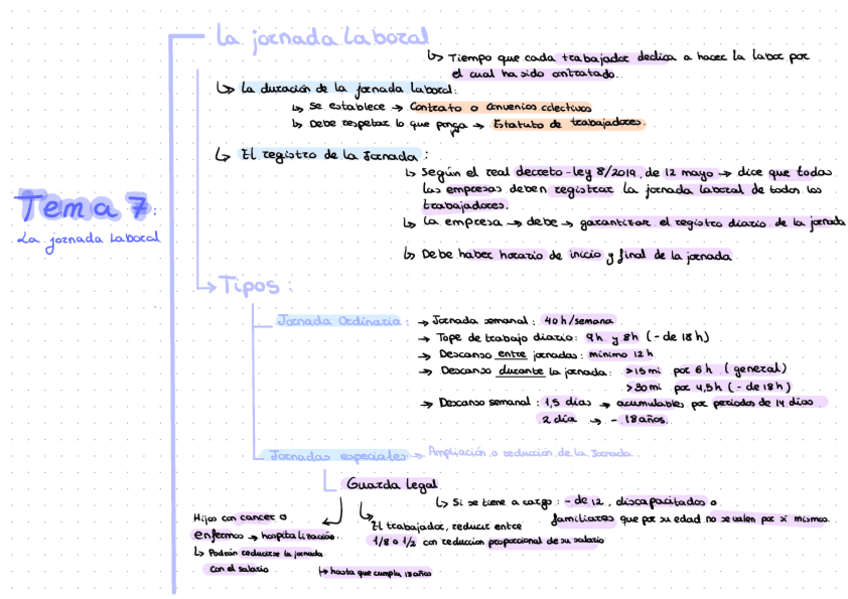 La jornada laboral
↳ Tiempo que cada trabajador dedica a hacer la labor por
el cual ha sido contratado.
↳ La duración de la jornada laboral:
↳ se establece → Contrato o convenios colectivos
↳ Debe respetar lo que ponga → Estatuto de trabajadores.
↳ El registro de la Jornada:
↳ Según el real decreto-ley 8/2019, de 12 mayo → dice que todas
las empresas deben registrar la jornada laboral de todos los
trabajadores.
Tema 7:
La jornada laboral
↳ La empresa → debe → garantizar el registro diario de la jornada
↳ Debe haber horario de inicio y final de la jornada
Tipos:
Jornada Ordinaria: → Jornada semanal: 40h/semana
→ Tope de trabajo diario: 9h y 8h (- de 18h)
→ Descanso entre jornadas: mínimo 12h
→ Descanso durante la jornada: >15mi por 6h (general)
>30mi por 4,5h (- de 18h)
→ Descanso semanal: 1,5 días → acumulables por periodos de 14 días
2 día → - 18 años.
Jornadas especiales → Ampliación o reducción de la Jornada
Guarda legal
↳ Si se tiene a cargo: - de 12, discapacitados o
familiares que por su edad no se valen por sí mismos
Hijos con cancer o
enfermos → hospitalización.
↳ Podrán reducirse la jornada
con el salario
El trabajador, reducir entre
1/8 o 1/2 con reduccion proporcional de su salario
↳ hasta que cumpla 18 años